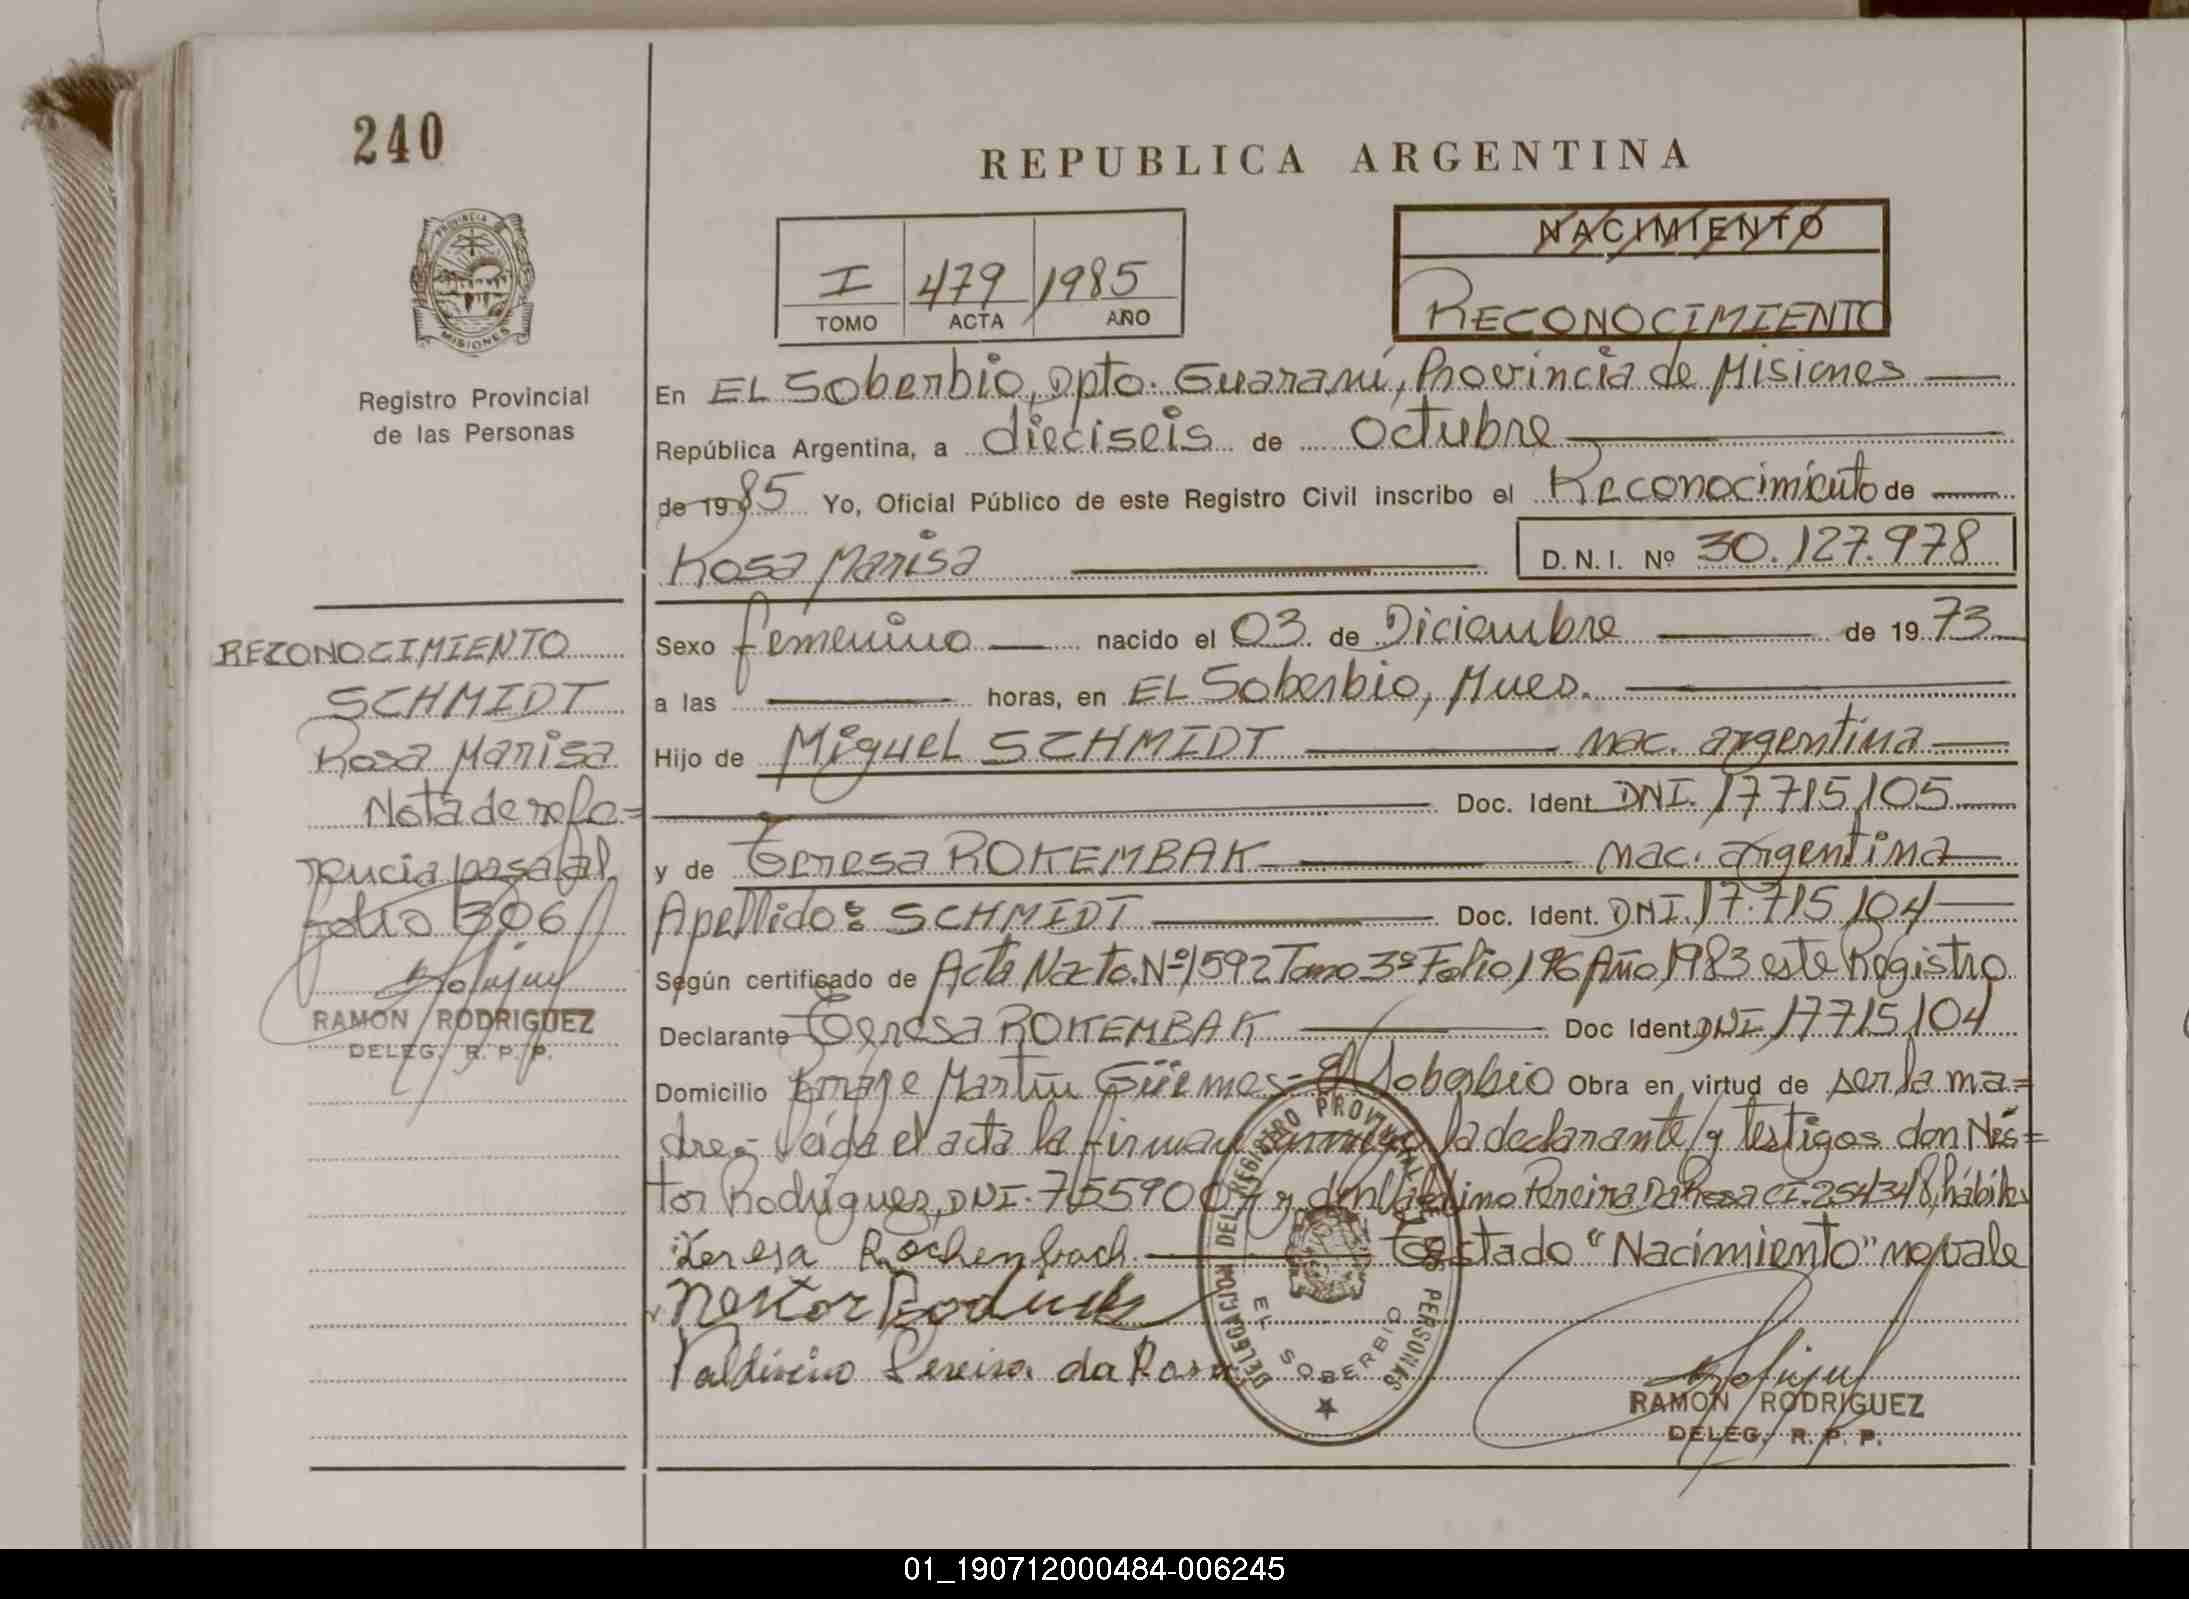 240
REPUBLICA ARGENTINA
PROVINCIA DE
MISIONES
Registro Provincial
de las Personas
I 479 1985
TOMO ACTA AÑO
NACIMIENTO
RECONOCIMIENTO
En EL Soberbio, Dpto. Guaraní, Provincia de Misiones
República Argentina, a dieciseis de Octubre
de 1985 Yo, Oficial Público de este Registro Civil inscribo el Reconocimiento de
Rosa Marisa D. N. I. Nº 30.127.978
Sexo femenino nacido el 03 de Diciembre de 1973
a las horas, en EL Soberbio, Mnes.
Hijo de Miguel SCHMIDT nac. argentina
Doc. Ident. DNI. 17715105
y de Teresa ROKEMBAK nac. argentina
Apellido: SCHMIDT Doc. Ident. DNI. 17.715104
Según certificado de Acta Nacto. Nº 1592 Tomo 3º Folio 196 Año 1983 este Registro
Declarante Teresa ROKEMBAK Doc Ident. DNI 17715104
Domicilio Paraje Martín Güemes - El Soberbio Obra en virtud de ser la ma=
dre.- Leída el acta la firman conmigo la declarante y testigos don Nés=
tor Rodriguez, DNI. 7559004 y don Valdivino Pereira Da Rosa CI. 254348, hábiles
Teresa Rochenbach. Testado "Nacimiento" no vale
Nestor Rodrigues
Valdivino Pereira da Rosa
DELEGACION DEL REGISTRO PROVINCIAL DE LAS PERSONAS
EL SOBERBIO
RAMON RODRIGUEZ
DELEG. R. P. P.
RECONOCIMIENTO
SCHMIDT
Rosa Marisa
Nota de refe=
rencia pasa al
folio 306
RAMON RODRIGUEZ
DELEG. R. P. P.
01_190712000484-006245